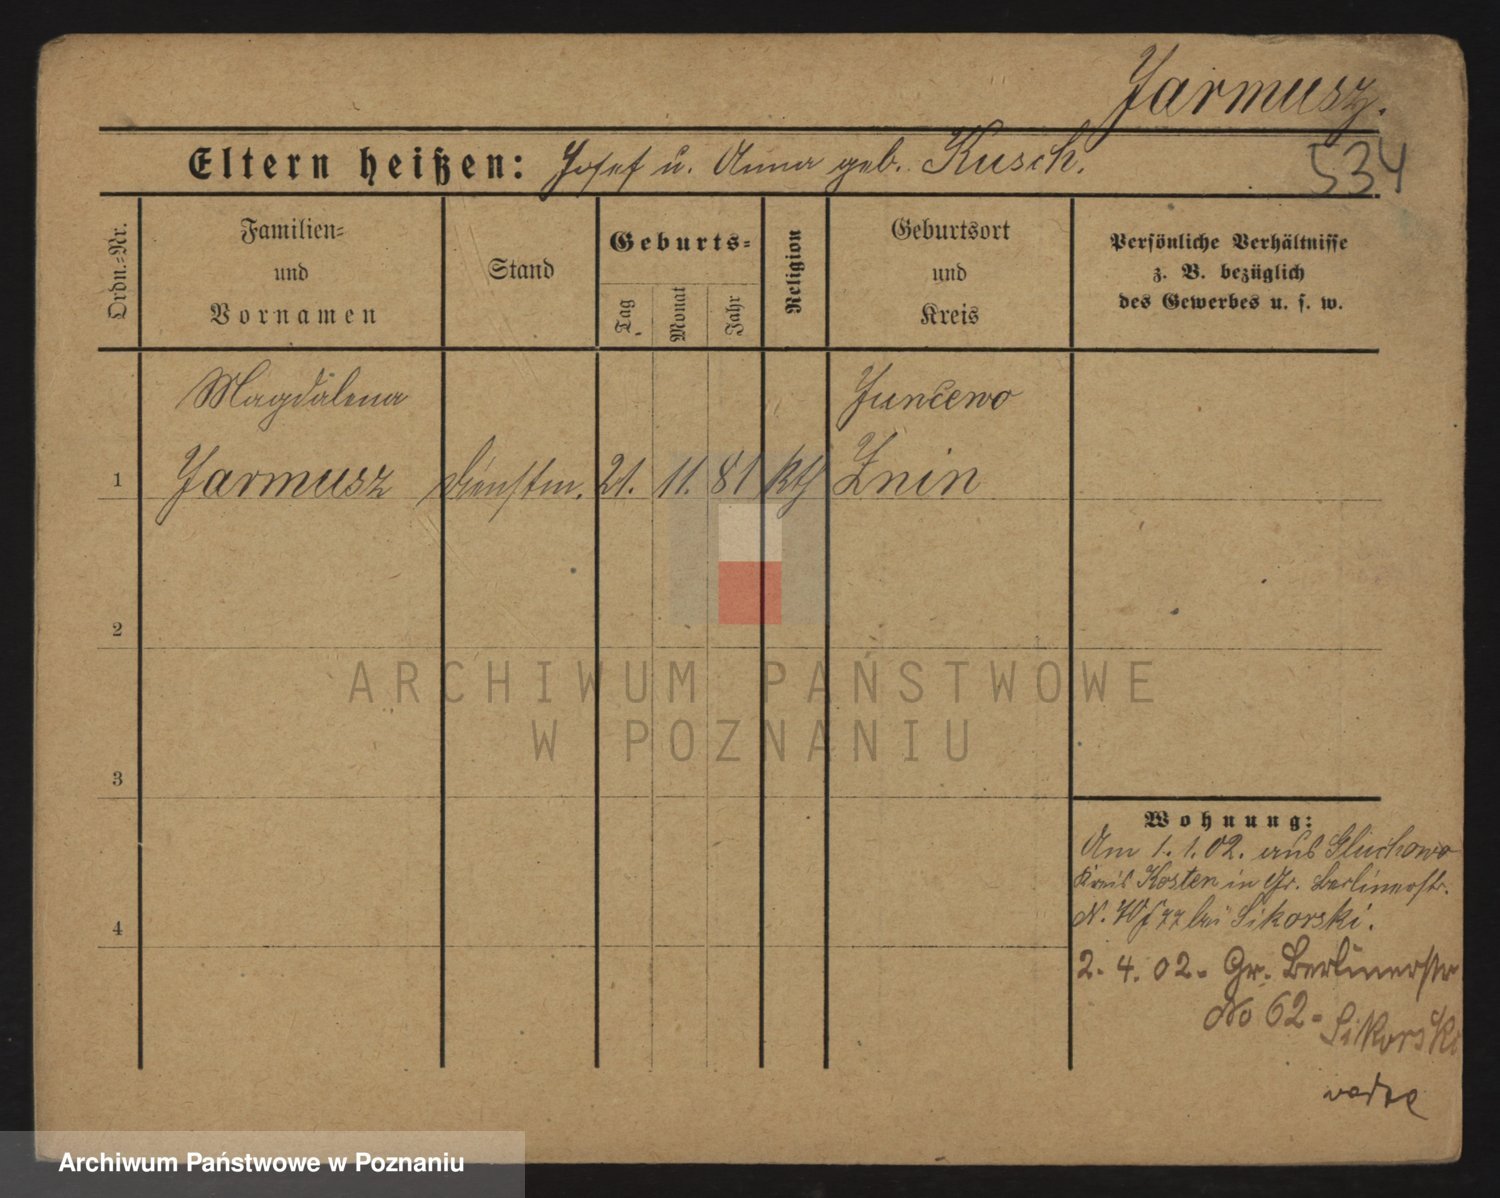 Jarmusz.
Eltern heißen: Josef u. Anna geb. Kusch.
534
Ordn.-Nr.
Familien- und Vornamen
Stand
Geburts-
Tag
Monat
Jahr
Religion
Geburtsort und Kreis
Persönliche Verhältnisse
z. B. bezüglich
des Gewerbes u. s. w.
Magdalena
Juncewo
1 Jarmusz Dienstm. 21. 11. 81 kth Znin
2
ARCHIWUM PAŃSTWOWE
W POZNANIU
3
Wohnung:
Am 1. 1. 02. aus Gluchowo
Kreis Kosten in Gr. Berlinerstr.
N. bei Sikorski.
4
2. 4. 02. Gr. Berlinerstr
No 62 - Sikorski
Archiwum Państwowe w Poznaniu